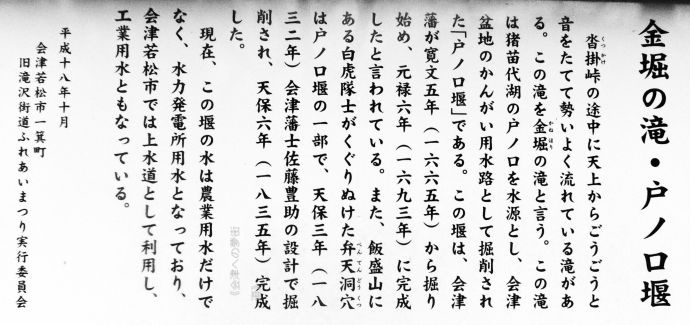 金堀の滝・戸ノ口堰
沓掛峠の途中に天上からごうごうと
音をたてて勢いよく流れている滝があ
る。この滝を金堀の滝と言う。この滝
は猪苗代湖の戸ノ口を水源とし、会津
盆地のかんがい用水路として掘削され
た「戸ノ口堰」である。この堰は、会津
藩が寛文五年（一六六五年）から掘り
始め、元禄六年（一六九三年）に完成
したと言われている。また、飯盛山に
ある白虎隊士がくぐりぬけた弁天洞穴
は戸ノ口堰の一部で、天保三年（一八
三二年）会津藩士佐藤豊助の設計で掘
削され、天保六年（一八三五年）完成
した。
現在、この堰の水は農業用水だけで
なく、水力発電所用水となっており、
会津若松市では上水道として利用し、
工業用水ともなっている。
平成十八年十月
会津若松市一箕町
旧滝沢街道ふれあいまつり実行委員会